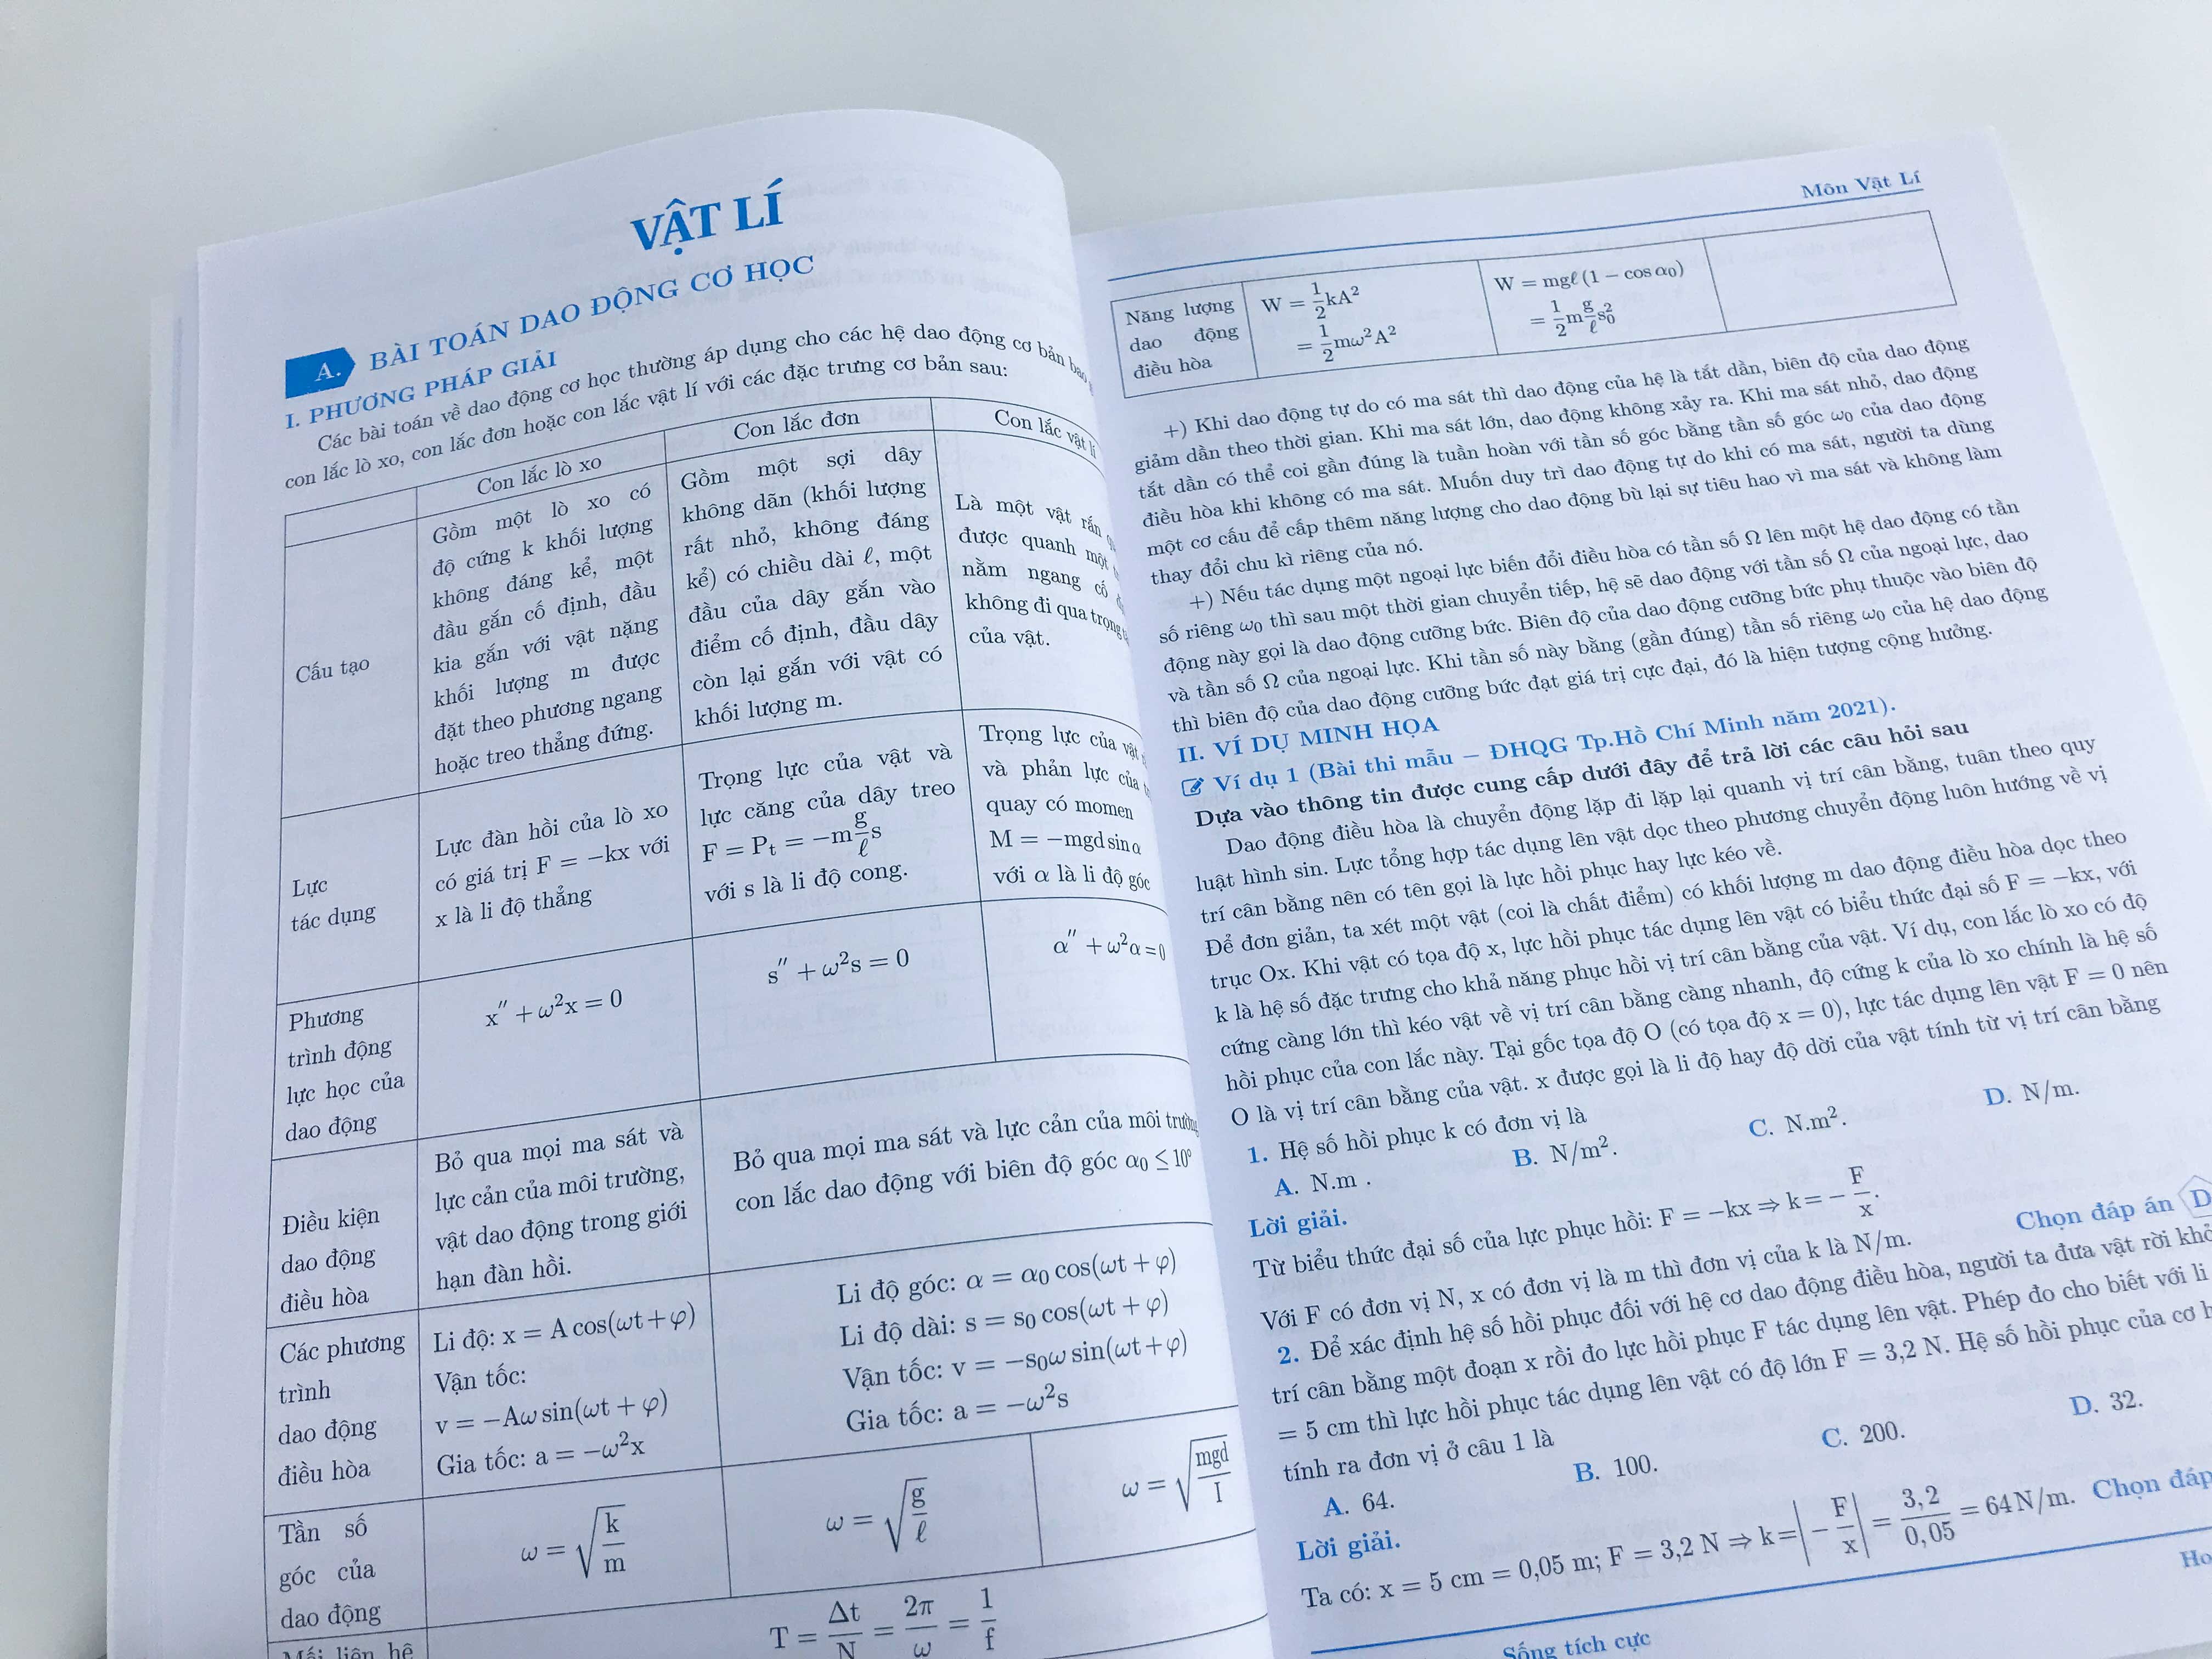 VẬT LÍ
A. BÀI TOÁN DAO ĐỘNG CƠ HỌC
I. PHƯƠNG PHÁP GIẢI
Các bài toán về dao động cơ học thường áp dụng cho các hệ dao động cơ bản bao
con lắc lò xo, con lắc đơn hoặc con lắc vật lí với các đặc trưng cơ bản sau:
Con lắc lò xo
Con lắc đơn
Con lắc vật lí
Cấu tạo
Gồm một lò xo có
độ cứng k khối lượng
không đáng kể, một
đầu gắn cố định, đầu
kia gắn với vật nặng
khối lượng m được
đặt theo phương ngang
hoặc treo thẳng đứng.
Gồm một sợi dây
không dãn (khối lượng
rất nhỏ, không đáng
kể) có chiều dài ℓ, một
đầu của dây gắn vào
điểm cố định, đầu dây
còn lại gắn với vật có
khối lượng m.
Là một vật rắn
được quanh một
nằm ngang cố
không đi qua trọng
của vật.
Lực
tác dụng
Lực đàn hồi của lò xo
có giá trị F = −kx với
x là li độ thẳng
Trọng lực của vật và
lực căng của dây treo
F = Pt = −m g/ℓ s
với s là li độ cong.
Trọng lực của vật
và phản lực của
quay có momen
M = −mgd sin α
với α là li độ góc
Phương
trình động
lực học của
dao động
x″ + ω²x = 0
s″ + ω²s = 0
α″ + ω²α = 0
Điều kiện
dao động
điều hòa
Bỏ qua mọi ma sát và
lực cản của môi trường,
vật dao động trong giới
hạn đàn hồi.
Bỏ qua mọi ma sát và lực cản của môi trường
con lắc dao động với biên độ góc α₀ ≤ 10°
Các phương
trình
dao động
điều hòa
Li độ: x = A cos(ωt + φ)
Vận tốc:
v = −Aω sin(ωt + φ)
Gia tốc: a = −ω²x
Li độ góc: α = α₀ cos(ωt + φ)
Li độ dài: s = s₀ cos(ωt + φ)
Vận tốc: v = −s₀ω sin(ωt + φ)
Gia tốc: a = −ω²s
Tần số
góc của
dao động
ω = √(k/m)
ω = √(g/ℓ)
ω = √(mgd/I)
Mối liên hệ
T = Δt/N = 2π/ω = 1/f
Môn Vật Lí
Năng lượng
dao động
điều hòa
W = 1/2 kA²
= 1/2 mω²A²
W = mgℓ (1 − cos α₀)
= 1/2 m g/ℓ s₀²
+) Khi dao động tự do có ma sát thì dao động của hệ là tắt dần, biên độ của dao động
giảm dần theo thời gian. Khi ma sát lớn, dao động không xảy ra. Khi ma sát nhỏ, dao động
tắt dần có thể coi gần đúng là tuần hoàn với tần số góc bằng tần số góc ω₀ của dao động
điều hòa khi không có ma sát. Muốn duy trì dao động tự do khi có ma sát, người ta dùng
một cơ cấu để cấp thêm năng lượng cho dao động bù lại sự tiêu hao vì ma sát và không làm
thay đổi chu kì riêng của nó.
+) Nếu tác dụng một ngoại lực biến đổi điều hòa có tần số Ω lên một hệ dao động có tần
số riêng ω₀ thì sau một thời gian chuyển tiếp, hệ sẽ dao động với tần số Ω của ngoại lực, dao
động này gọi là dao động cưỡng bức. Biên độ của dao động cưỡng bức phụ thuộc vào biên độ
và tần số Ω của ngoại lực. Khi tần số này bằng (gần đúng) tần số riêng ω₀ của hệ dao động
thì biên độ của dao động cưỡng bức đạt giá trị cực đại, đó là hiện tượng cộng hưởng.
II. VÍ DỤ MINH HỌA
Ví dụ 1 (Bài thi mẫu – ĐHQG Tp.Hồ Chí Minh năm 2021).
Dựa vào thông tin được cung cấp dưới đây để trả lời các câu hỏi sau
Dao động điều hòa là chuyển động lặp đi lặp lại quanh vị trí cân bằng, tuân theo quy
luật hình sin. Lực tổng hợp tác dụng lên vật dọc theo phương chuyển động luôn hướng về vị
trí cân bằng nên có tên gọi là lực hồi phục hay lực kéo về.
Để đơn giản, ta xét một vật (coi là chất điểm) có khối lượng m dao động điều hòa dọc theo
trục Ox. Khi vật có tọa độ x, lực hồi phục tác dụng lên vật có biểu thức đại số F = −kx, với
k là hệ số đặc trưng cho khả năng phục hồi vị trí cân bằng của vật. Ví dụ, con lắc lò xo có độ
cứng càng lớn thì kéo vật về vị trí cân bằng càng nhanh, độ cứng k của lò xo chính là hệ số
hồi phục của con lắc này. Tại gốc tọa độ O (có tọa độ x = 0), lực tác dụng lên vật F = 0 nên
O là vị trí cân bằng của vật. x được gọi là li độ hay độ dời của vật tính từ vị trí cân bằng
1. Hệ số hồi phục k có đơn vị là
A. N.m . B. N/m². C. N.m². D. N/m.
Lời giải.
Từ biểu thức đại số của lực phục hồi: F = −kx ⇒ k = − F/x.
Với F có đơn vị N, x có đơn vị là m thì đơn vị của k là N/m.
Chọn đáp án D
2. Để xác định hệ số hồi phục đối với hệ cơ dao động điều hòa, người ta đưa vật rời khỏ
trí cân bằng một đoạn x rồi đo lực hồi phục F tác dụng lên vật. Phép đo cho biết với li
= 5 cm thì lực hồi phục tác dụng lên vật có độ lớn F = 3,2 N. Hệ số hồi phục của cơ h
tính ra đơn vị ở câu 1 là
A. 64. B. 100. C. 200. D. 32.
Lời giải.
Ta có: x = 5 cm = 0,05 m; F = 3,2 N ⇒ k = |− F/x| = 3,2/0,05 = 64 N/m. Chọn đáp
Sống tích cực
Ho